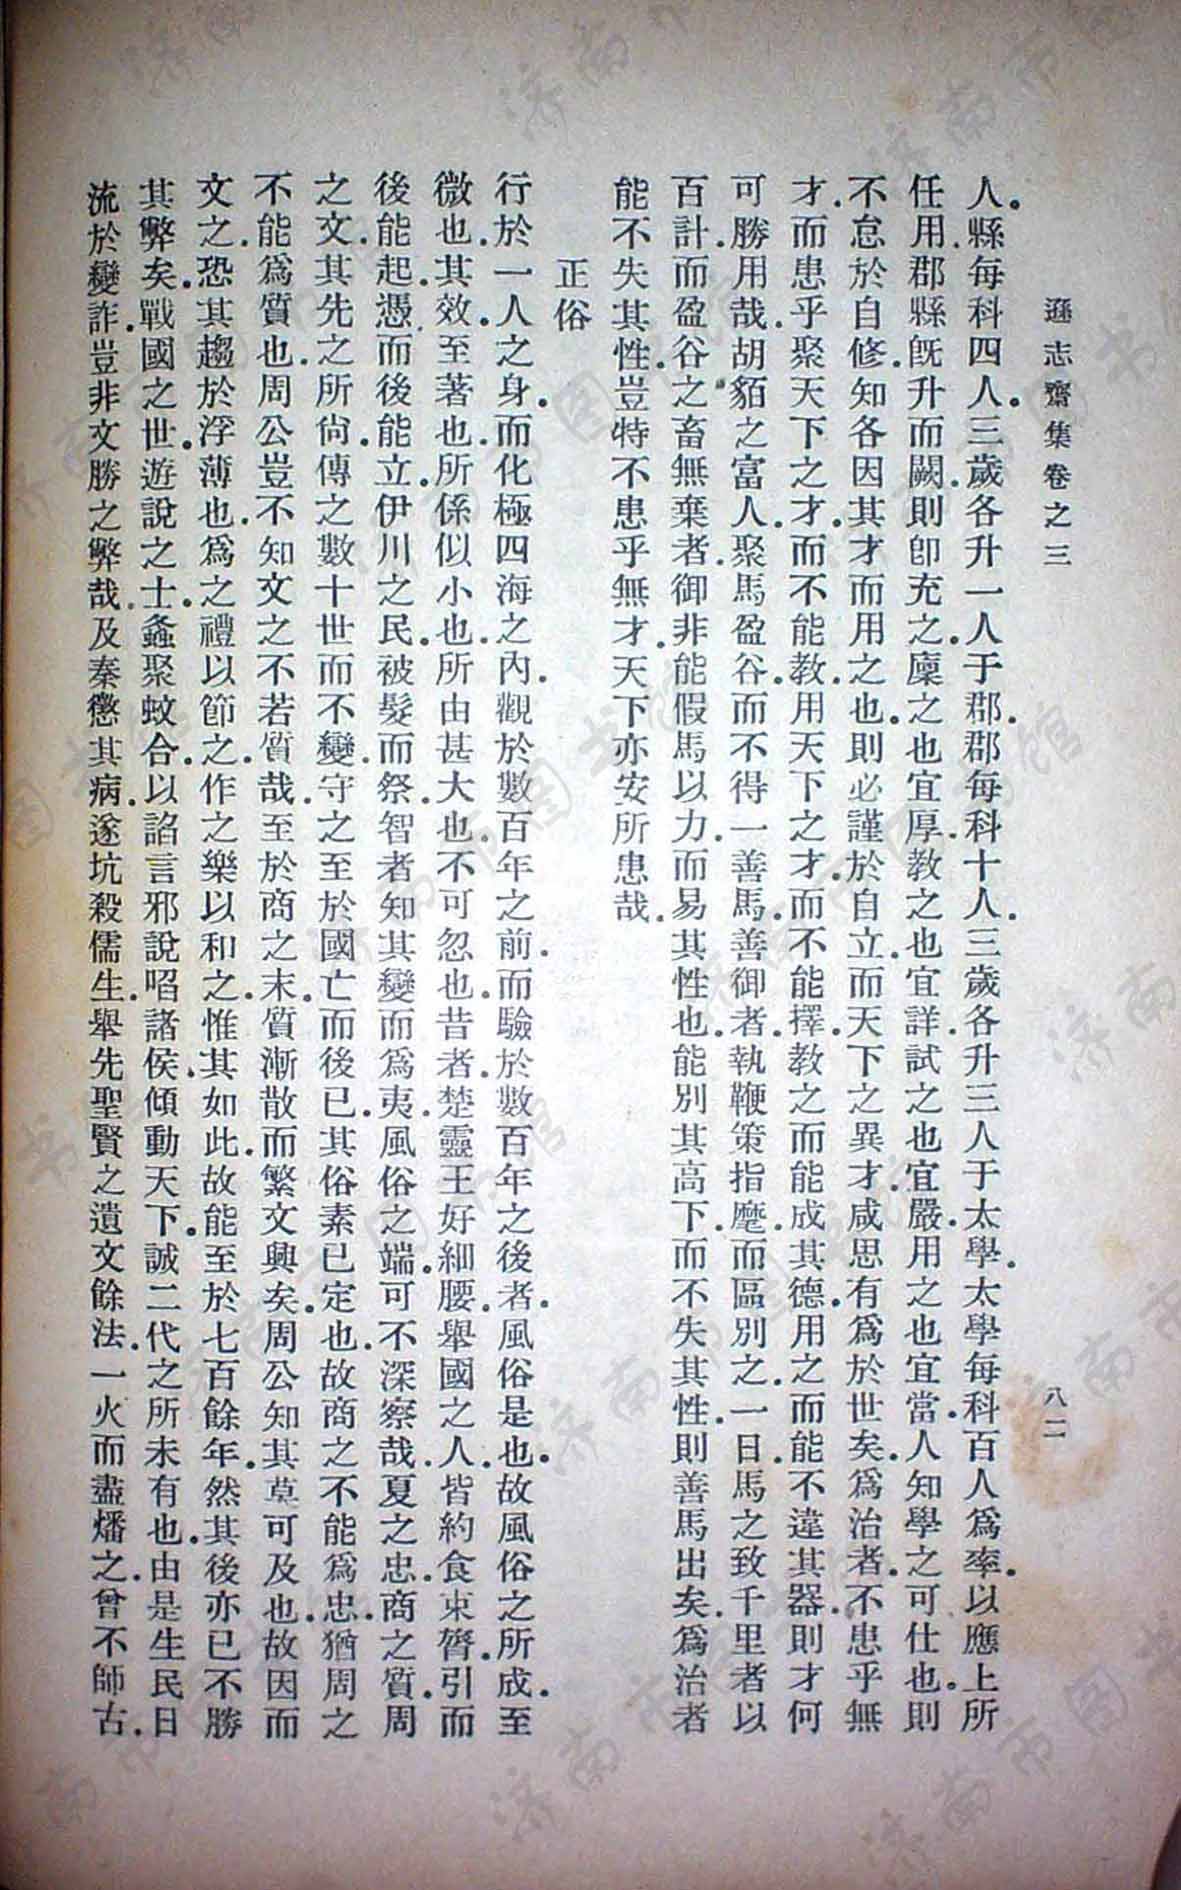 遜志齋集卷之三　八二
人．縣每科四人．三歲各升一人于郡．郡每科十人．三歲各升三人于太學．太學每科百人爲率．以應上所
任用．郡縣旣升而闕．則卽充之．廩之也宜厚．教之也宜詳．試之也宜嚴．用之也宜當．人知學之可仕也．則
不怠於自修．知各因其才而用之也．則必謹於自立．而天下之異才．咸思有爲於世矣．爲治者．不患乎無
才．而患乎聚天下之才．而不能教．用天下之才．而不能擇．教之而能成其德．用之而能不違其器．則才何
可勝用哉．胡貊之富人．聚馬盈谷．而不得一善馬．善御者．執鞭策指麾．而區別之．一日馬之致千里者以
百計．而盈谷之畜無棄者．御非能假馬以力．而易其性也．能別其高下．而不失其性．則善馬出矣．爲治者
能不失其性．豈特不患乎無才．天下亦安所患哉．
正俗
行於一人之身．而化極四海之內．觀於數百年之前．而驗於數百年之後者．風俗是也．故風俗之所成．至
微也．其效．至著也．所係似小也．所由甚大也．不可忽也．昔者．楚靈王好細腰．舉國之人．皆約食束膂．引而
後能起．憑而後能立．伊川之民．被髮而祭．智者知其變而爲夷．風俗之端．可不深察哉．夏之忠．商之質．周
之文．其先之所尙．傳之數十世而不變．守之至於國亡而後已．其俗素已定也．故商之不能爲忠．猶周之
不能爲質也．周公豈不知文之不若質哉．至於商之末．質漸散而繁文興矣．周公知其莫可及也．故因而
文之．恐其趨於浮薄也．爲之禮以節之．作之樂以和之．惟其如此．故能至於七百餘年．然其後亦已不勝
其弊矣．戰國之世．遊說之士．螽聚蚊合．以諂言邪說啗諸侯．傾動天下．誠二代之所未有也．由是生民日
流於變詐．豈非文勝之弊哉．及秦懲其病．遂坑殺儒生．舉先聖賢之遺文餘法．一火而盡燔之．曾不師古．